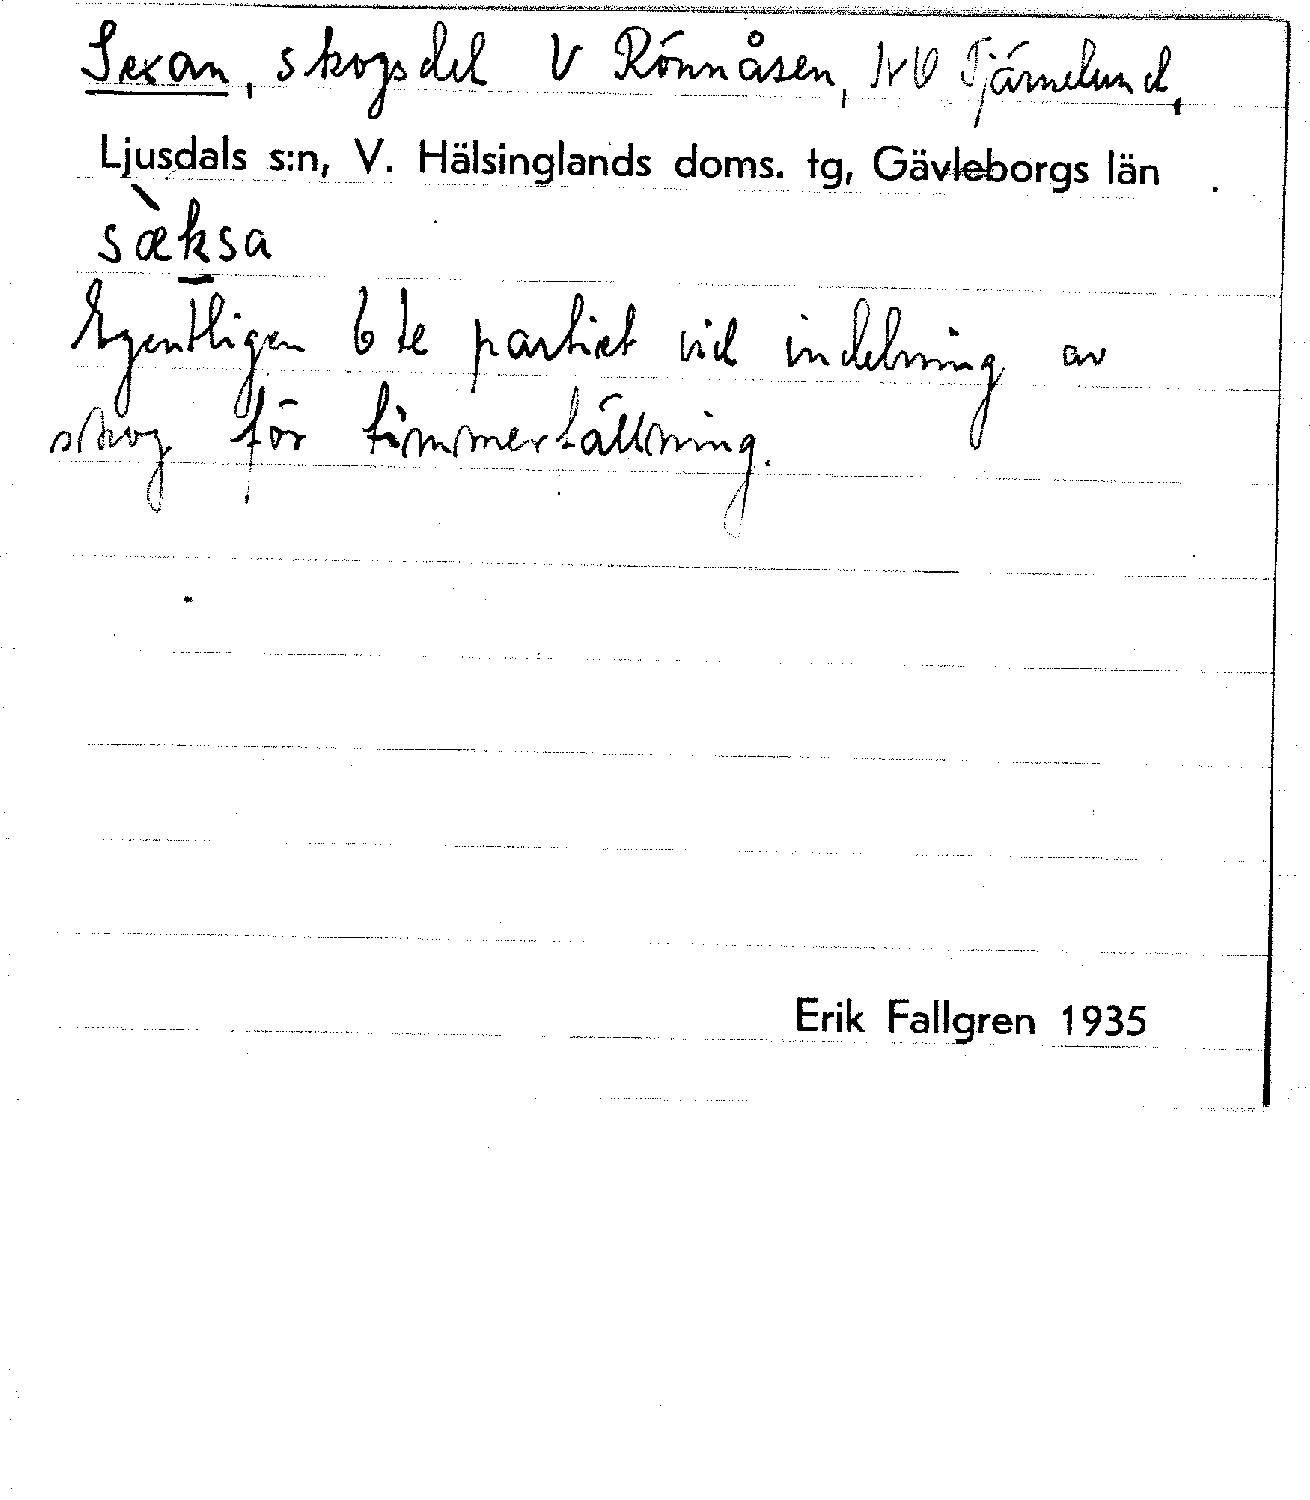 Sexan, skogsdel V Rönnåsen, NV Tjärnelund,
Ljusdals s:n, V. Hälsinglands doms. tg, Gävleborgs län
sæ̀ksa
Egentligen 6te partiet vid indelning av
skog för timmerfällning.
Erik Fallgren 1935